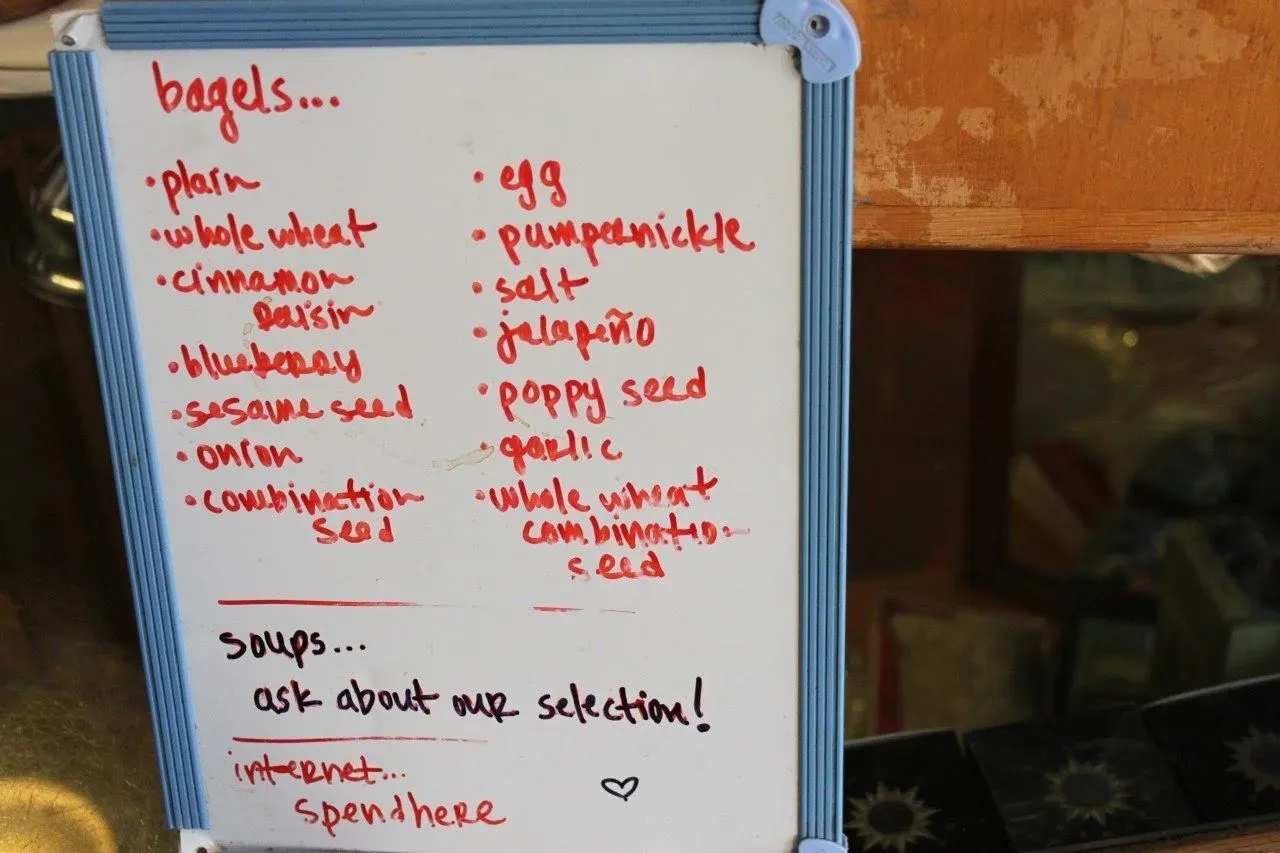 bagels...
• plain
• whole wheat
• cinnamon
raisin
• blueberry
• sesame seed
• onion
• combination
seed
• egg
• pumpernickle
• salt
• jalapeño
• poppy seed
• garlic
• whole wheat
combination
seed
soups...
ask about our selection!
internet...
spendhere